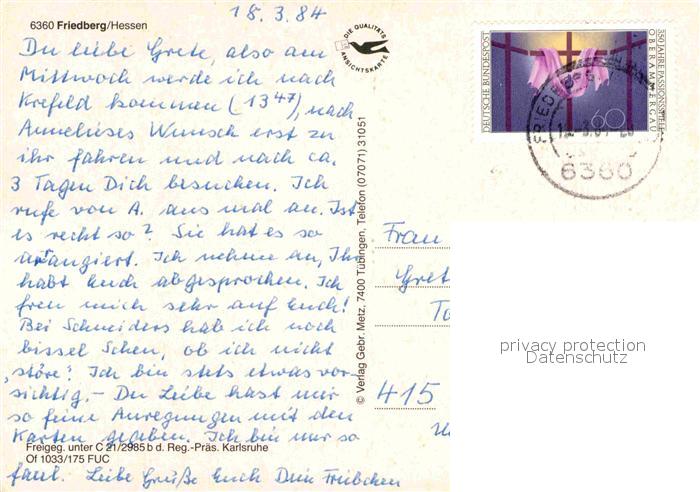 18.3.84
6360 Friedberg/Hessen
DIE QUALITÄTS
ANSICHTSKARTE
Du liebe Grete, also am
Mittwoch werde ich nach
Krefeld kommen (13 47), nach
Annelieses Wunsch erst zu
ihr fahren und nach ca.
3 Tagen Dich besuchen. Ich
rufe von A. aus mal an. Ist
es recht so? Sie hat es so
arrangiert. Ich nehme an, Ihr
habt Euch abgesprochen. Ich
freu mich sehr auf Euch!
Bei Schneiders hab ich noch
bissel Scheu, ob ich nicht
"störe". Ich bin stets etwas vor-
sichtig. - Du Liebe hast mir
so feine Anregungen mit den
Karten gegeben. Ich bin nur so
faul. Liebe Grüße Euch Dein
Freigeg. unter C 21/2985 b d. Reg.-Präs. Karlsruhe
Of 1033/175 FUC
© Verlag Gebr. Metz, 7400 Tübingen, Telefon (07071) 31051
DEUTSCHE BUNDESPOST
350 JAHRE PASSIONSSPIELE
OBERAMMERGAU
60
6360
Frau
Grete
415
privacy protection
Datenschutz